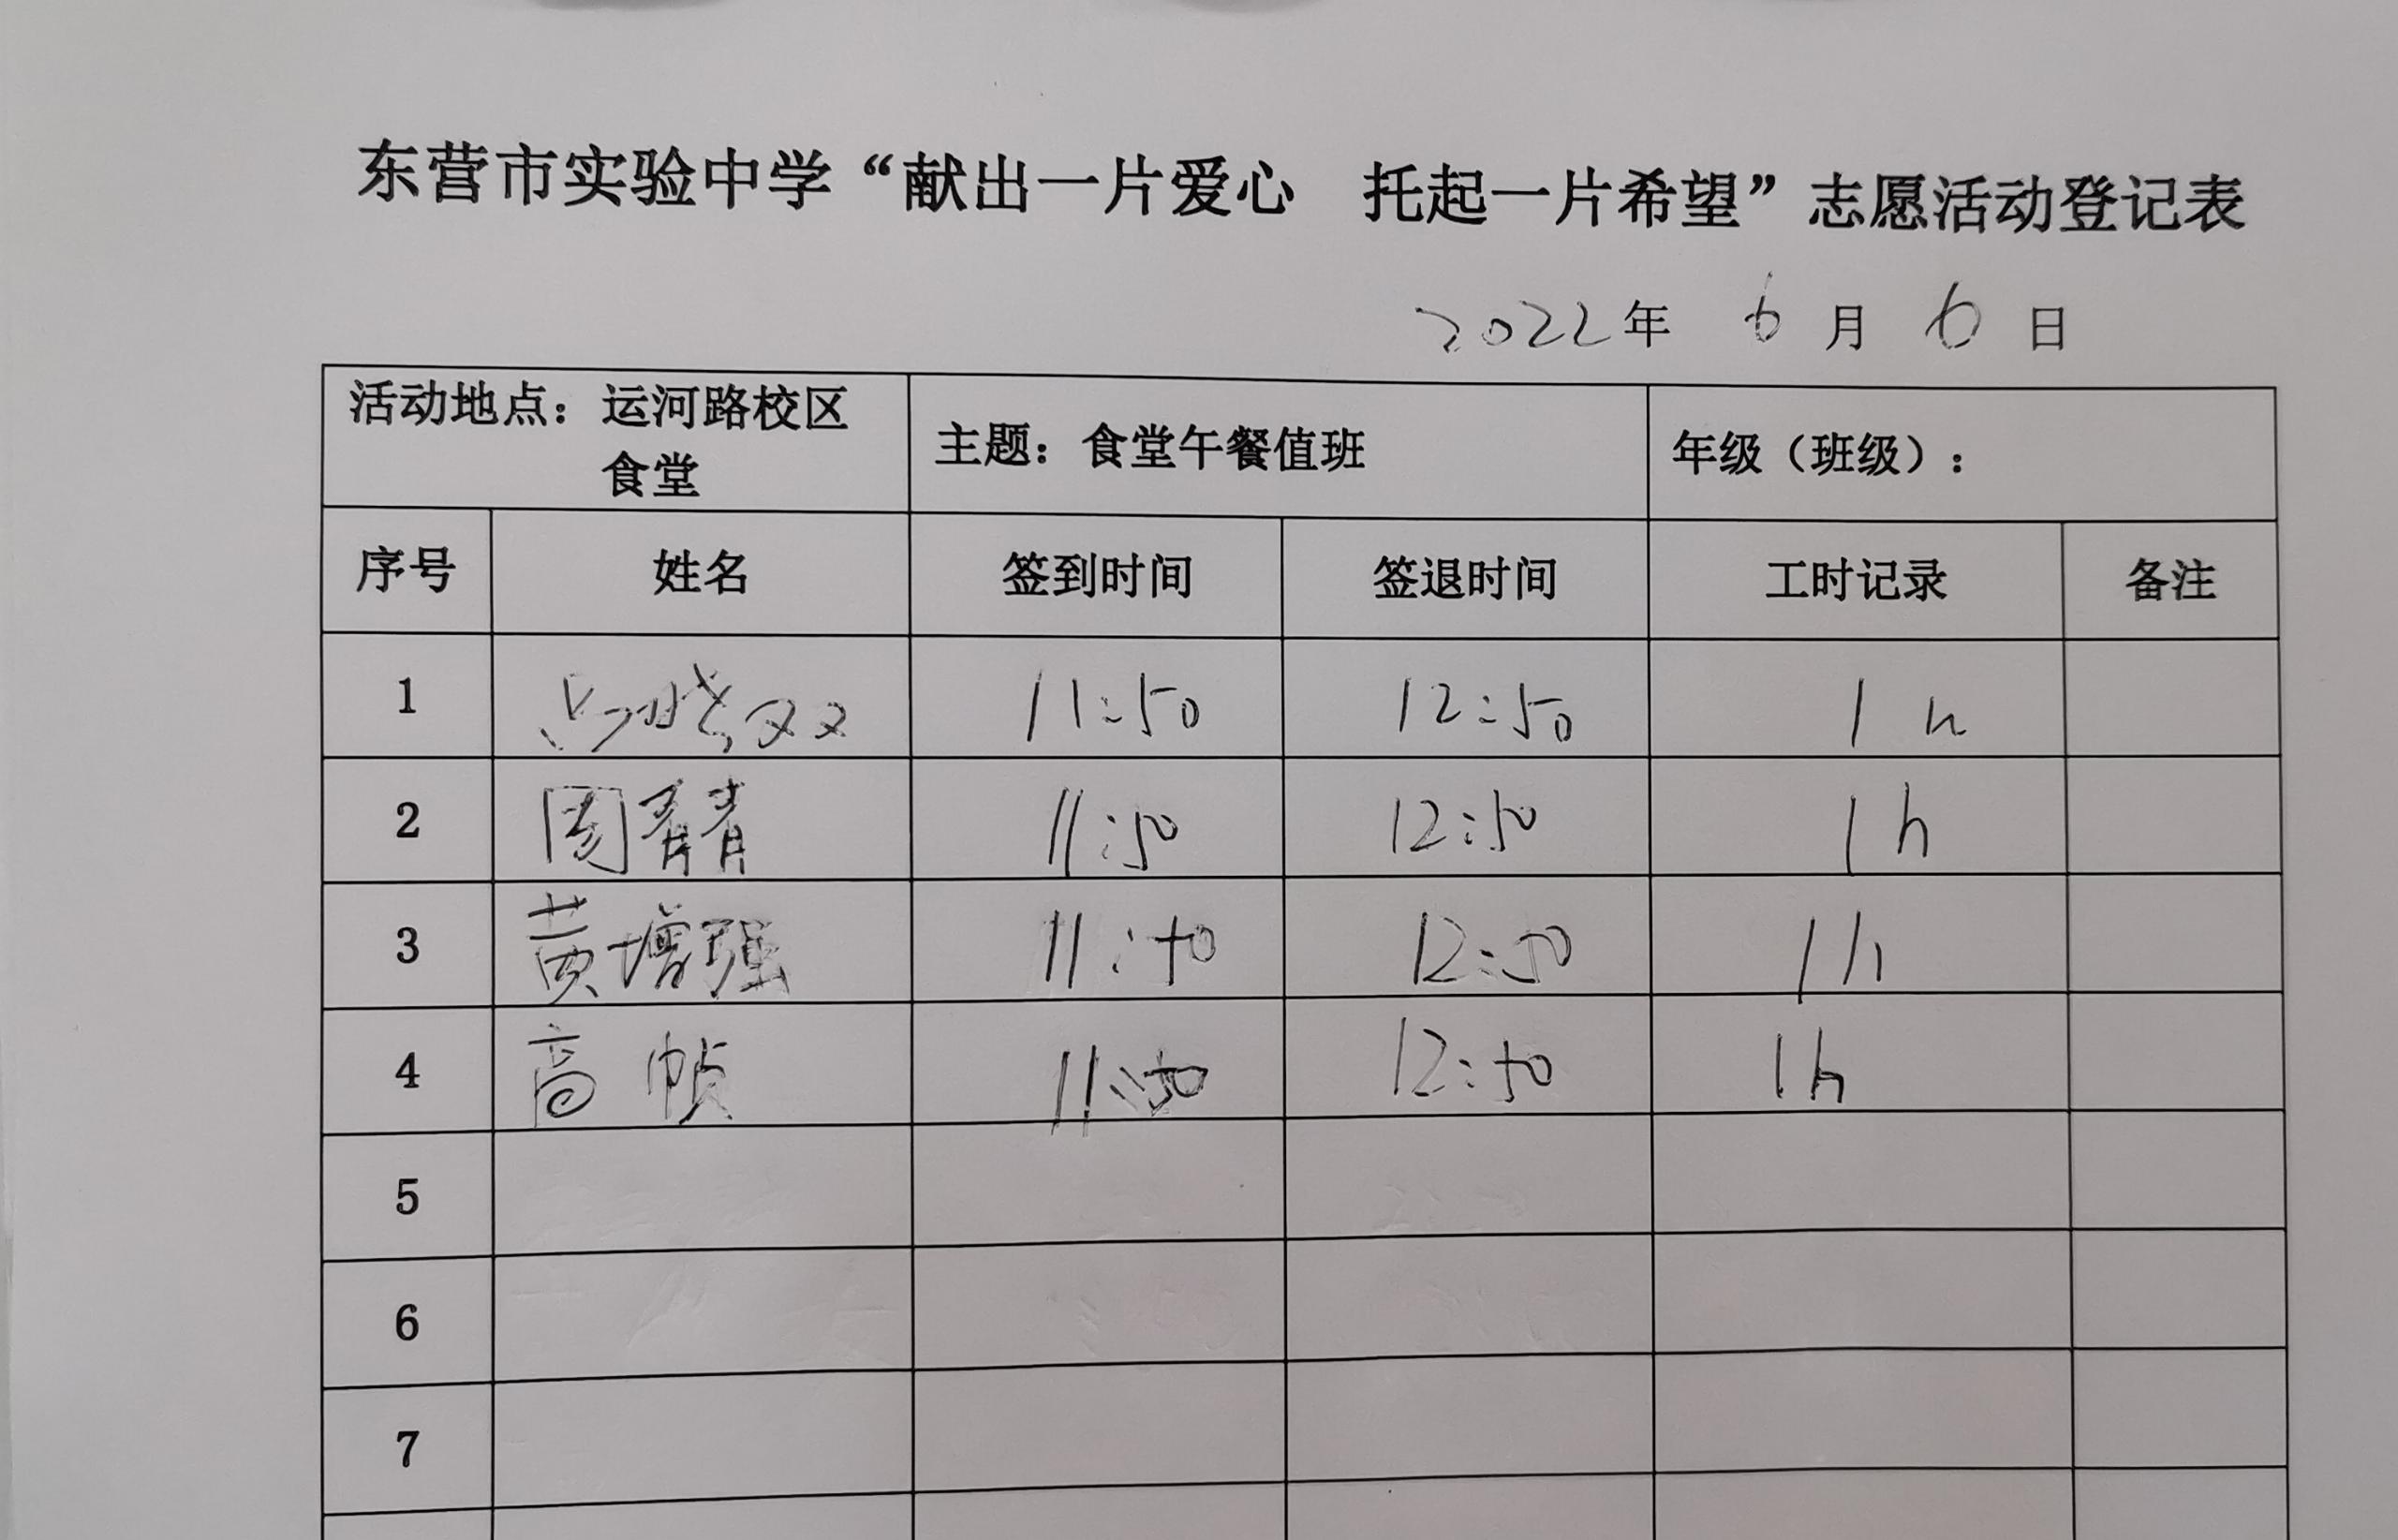 东营市实验中学“献出一片爱心 托起一片希望”志愿活动登记表
2022年 6 月 6 日
活动地点：运河路校区食堂 主题：食堂午餐值班 年级（班级）：
序号 姓名 签到时间 签退时间 工时记录 备注
1 11:50 12:50 1 h
2 周青青 11:50 12:50 1 h
3 黄增强 11:50 12:50 1 h
4 高帧 11:50 12:50 1h
5
6
7